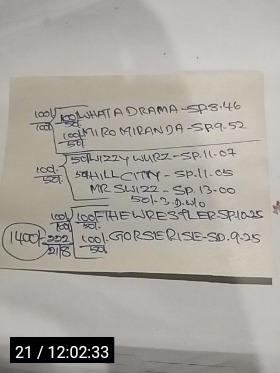 100/- 100/- WHAT A DRAMA - SP.8.46
100/- 50/-
100/- MIRO MIRANDA - SP.9-52
50/-
50/- WIZZY WURZ - SP.11-07
100/- 50/- HILL CITY - SP.11.05
50/-
MR SWIZZ - SP.13-00
50/- 3.D.W/O
100/- 100/- THE WRESTLER SP.10.25
100/- 50/-
1400/- 222 100/- GORSERISE - SD.9-25
218 50/-
21 / 12:02:33